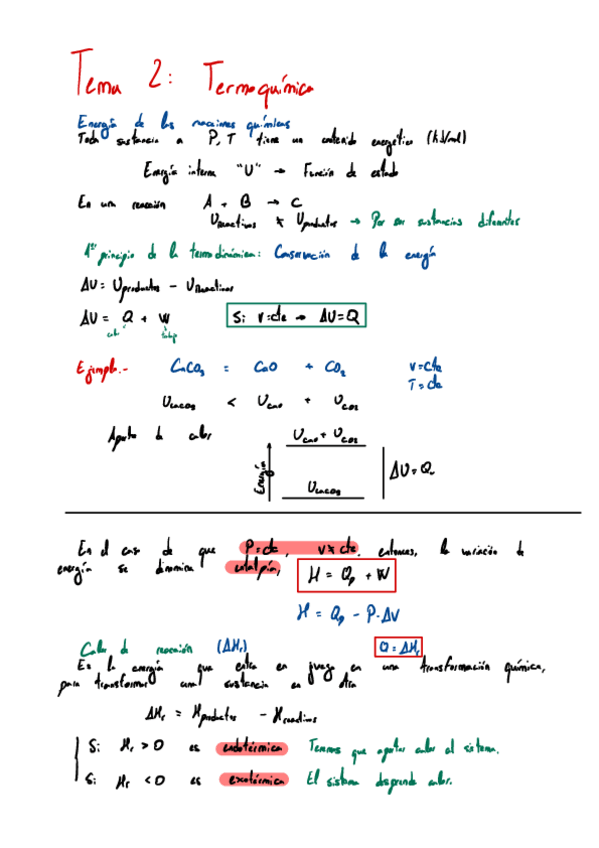 Tema 2: Termoquímica
Energía de las reacciones químicas
Toda sustancia a P, T tiene un contenido energético (kJ/mol)
Energía interna "U" → Función de estado
En una reacción A + B → C
Ureactivos ≠ Uproductos → Por ser sustancias diferentes
1er principio de la termodinámica: Conservación de la energía
ΔU = Uproductos - Ureactivos
ΔU = Q + W
calor trabajo
Si v=cte → ΔU=Q
Ejemplo.- CaCO3 = CaO + CO2 v=cte
T=cte
UCaCO3 < UCaO + UCO2
Aporte de calor
UCaO + UCO2
Energía
UCaCO3
ΔU=Qv
En el caso de que P=cte, v≠cte, entonces, la variación de
energía se denomina entalpía, H = Qp + W
H = Qp - P·ΔV
Calor de reacción (ΔHr) Q=ΔHr
Es la energía que entra en juego en una transformación química,
para transformar una sustancia en otra
ΔHr = Hproductos - Hreactivos
Si Hr > 0 es endotérmica Tenemos que aportar calor al sistema.
Si Hr < 0 es exotérmica El sistema desprende calor.